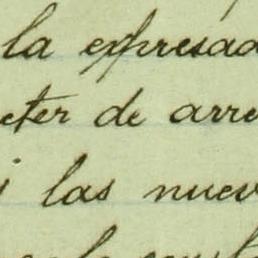 la expresad
eter de arre
i las nuev